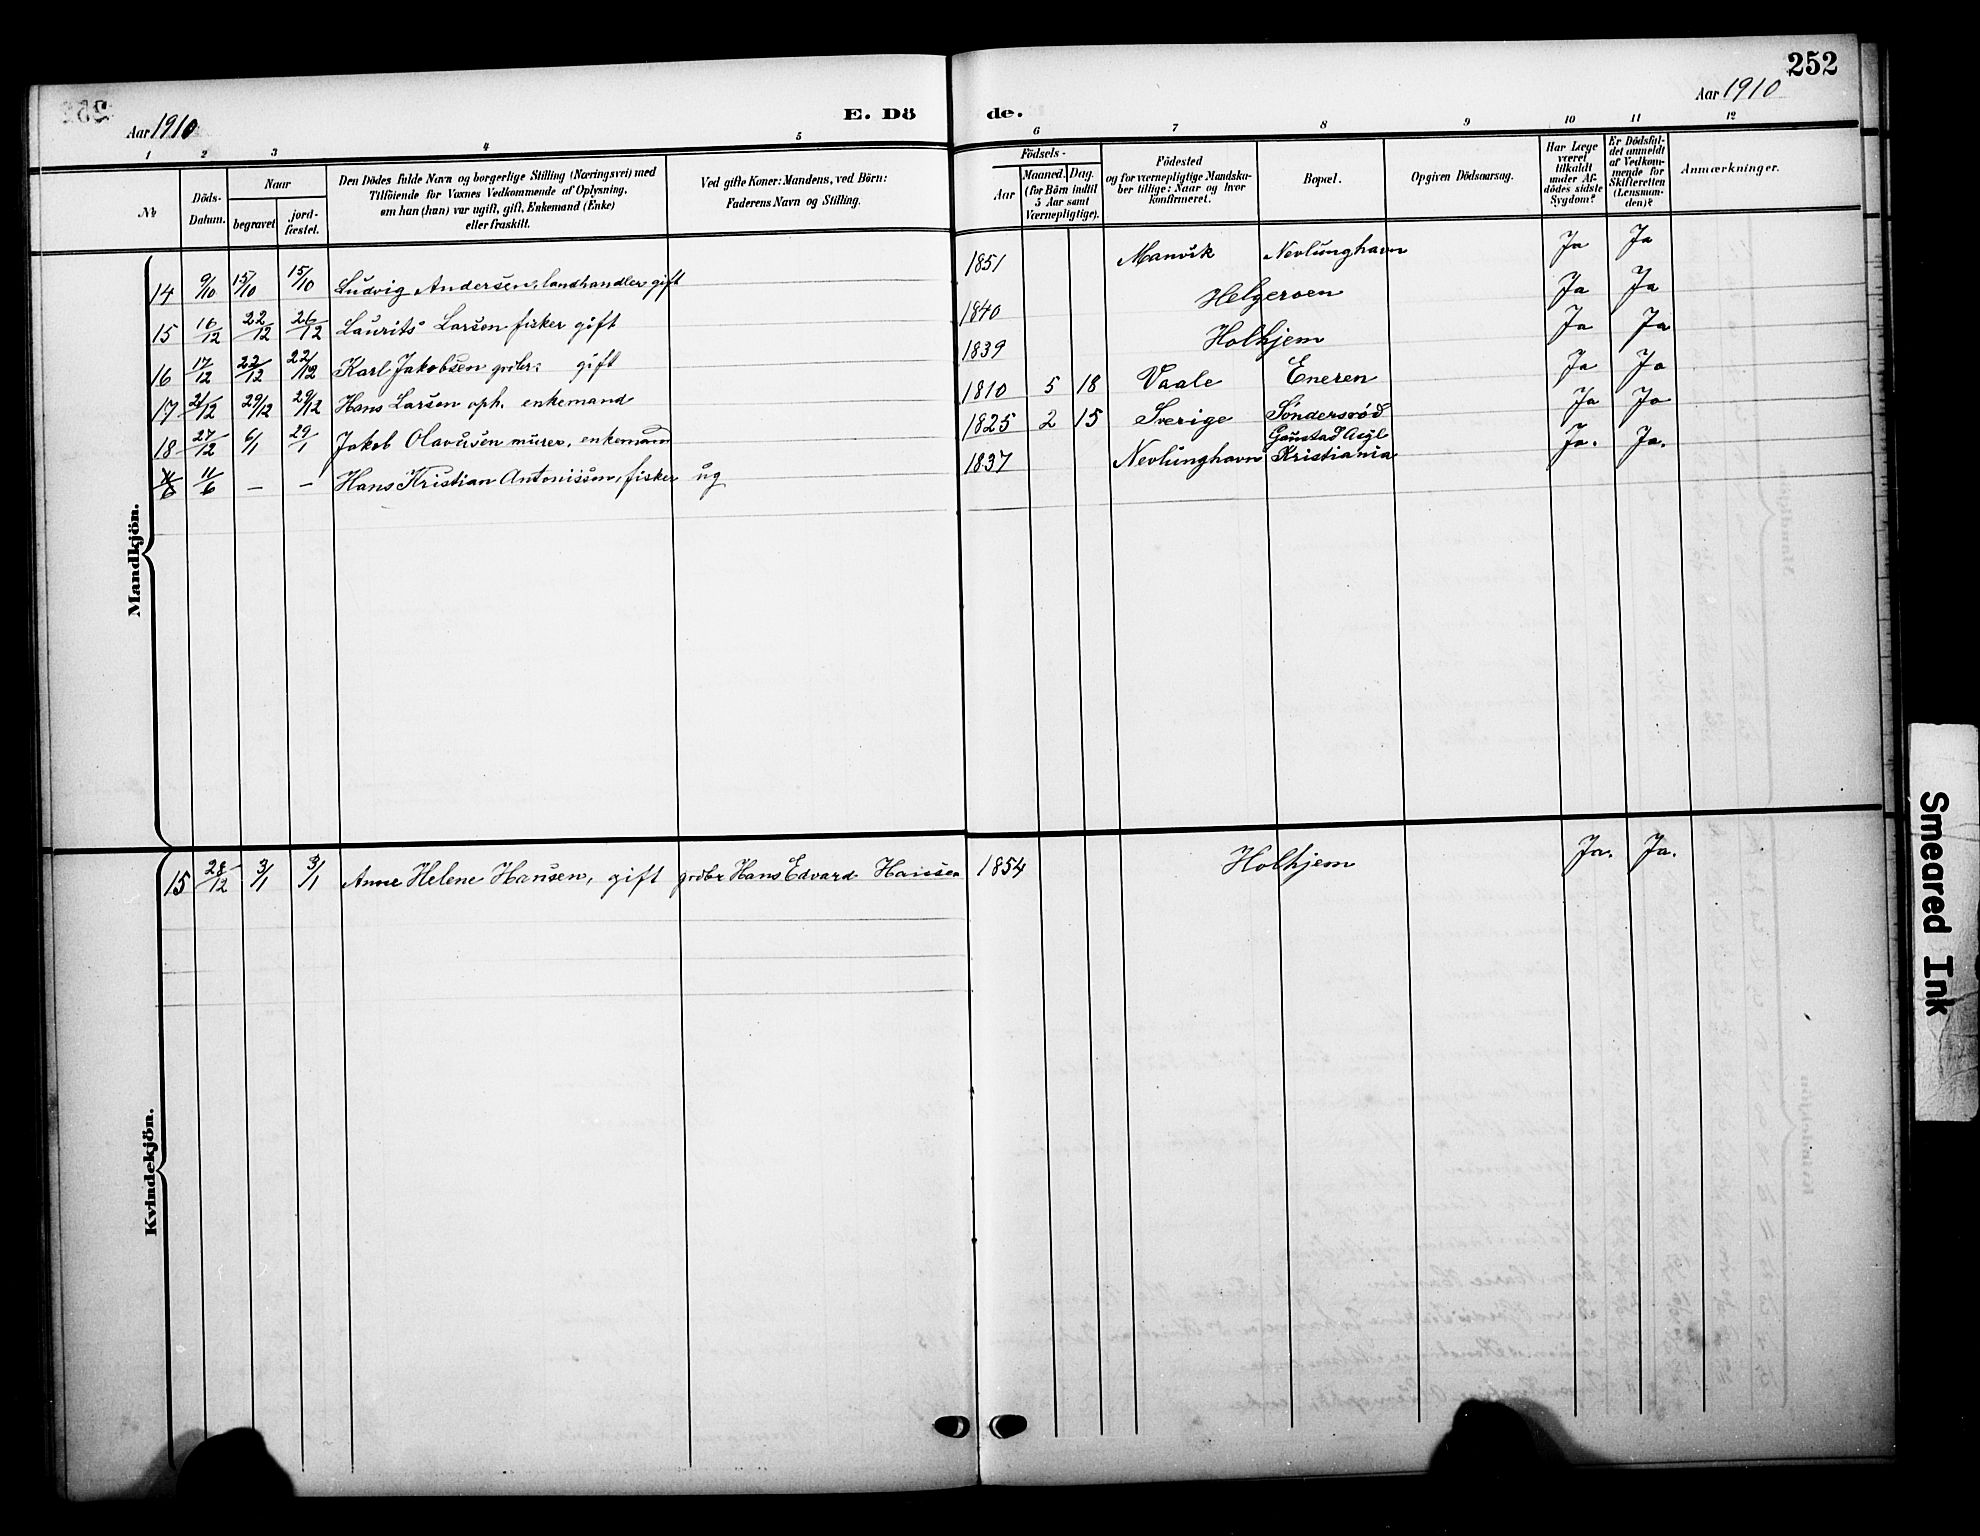 252
Aar 1910
E. Dö
de.
Aar 1910
1 2 3 4 5 6 7 8 9 10 11 12
№
Döds-Datum.
Naar
begravet
jord-fæstet.
Den Dödes fulde Navn og borgerlige Stilling (Næringsvei) med
Tilföiende for Voxnes Vedkommende af Oplysning,
om han (hun) var ugift, gift, Enkemand (Enke)
eller fraskilt.
Ved gifte Koner: Mandens, ved Börn:
Faderens Navn og Stilling.
Födsels-
Aar
Maaned. Dag.
(for Börn indtil
5 Aar samt
Værnepligtige).
Födested
og for værnepligtige Mandska-
ber tillige: Naar og hvor
konfirmeret.
Bopæl.
Opgiven Dödsaarsag.
Har Læge
været
tilkaldt
under Af-
dödes sidste
Sygdom?
Er Dödsfal-
det anmeldt
af Vedkom-
mende for
Skifteretten
(Lensman-
den)?
Anmærkninger.
Mandkjön.
14 9/10 15/10 15/10 Ludvig Andersen, landhandler gift 1851 Manvik Nevlunghavn Ja Ja
15 16/12 22/12 26/12 Laurits Larsen fisker gift 1840 Helgeroen Ja Ja
16 17/12 22/12 22/12 Karl Jakobsen grdbr. gift 1839 Holhjem Ja Ja
17 21/12 29/12 29/12 Hans Larsen oph. enkemand 1810 5 18 Vaale Eneren Ja Ja
18 27/12 6/1 29/1 Jakob Olavusen murer, enkemann 1825 2 15 Sverige Söndersröd Ja Ja
11/6 — — Hans Kristian Antonissen, fisker ug 1837 Nevlunghavn Gaustad Asyl Kristiania Ja. Ja.
Kvindekjön.
15 28/12 3/1 3/1 Anne Helene Hansen, gift grdbr Hans Edvard Hansen 1854 Holhjem Ja. Ja.
Smeared Ink